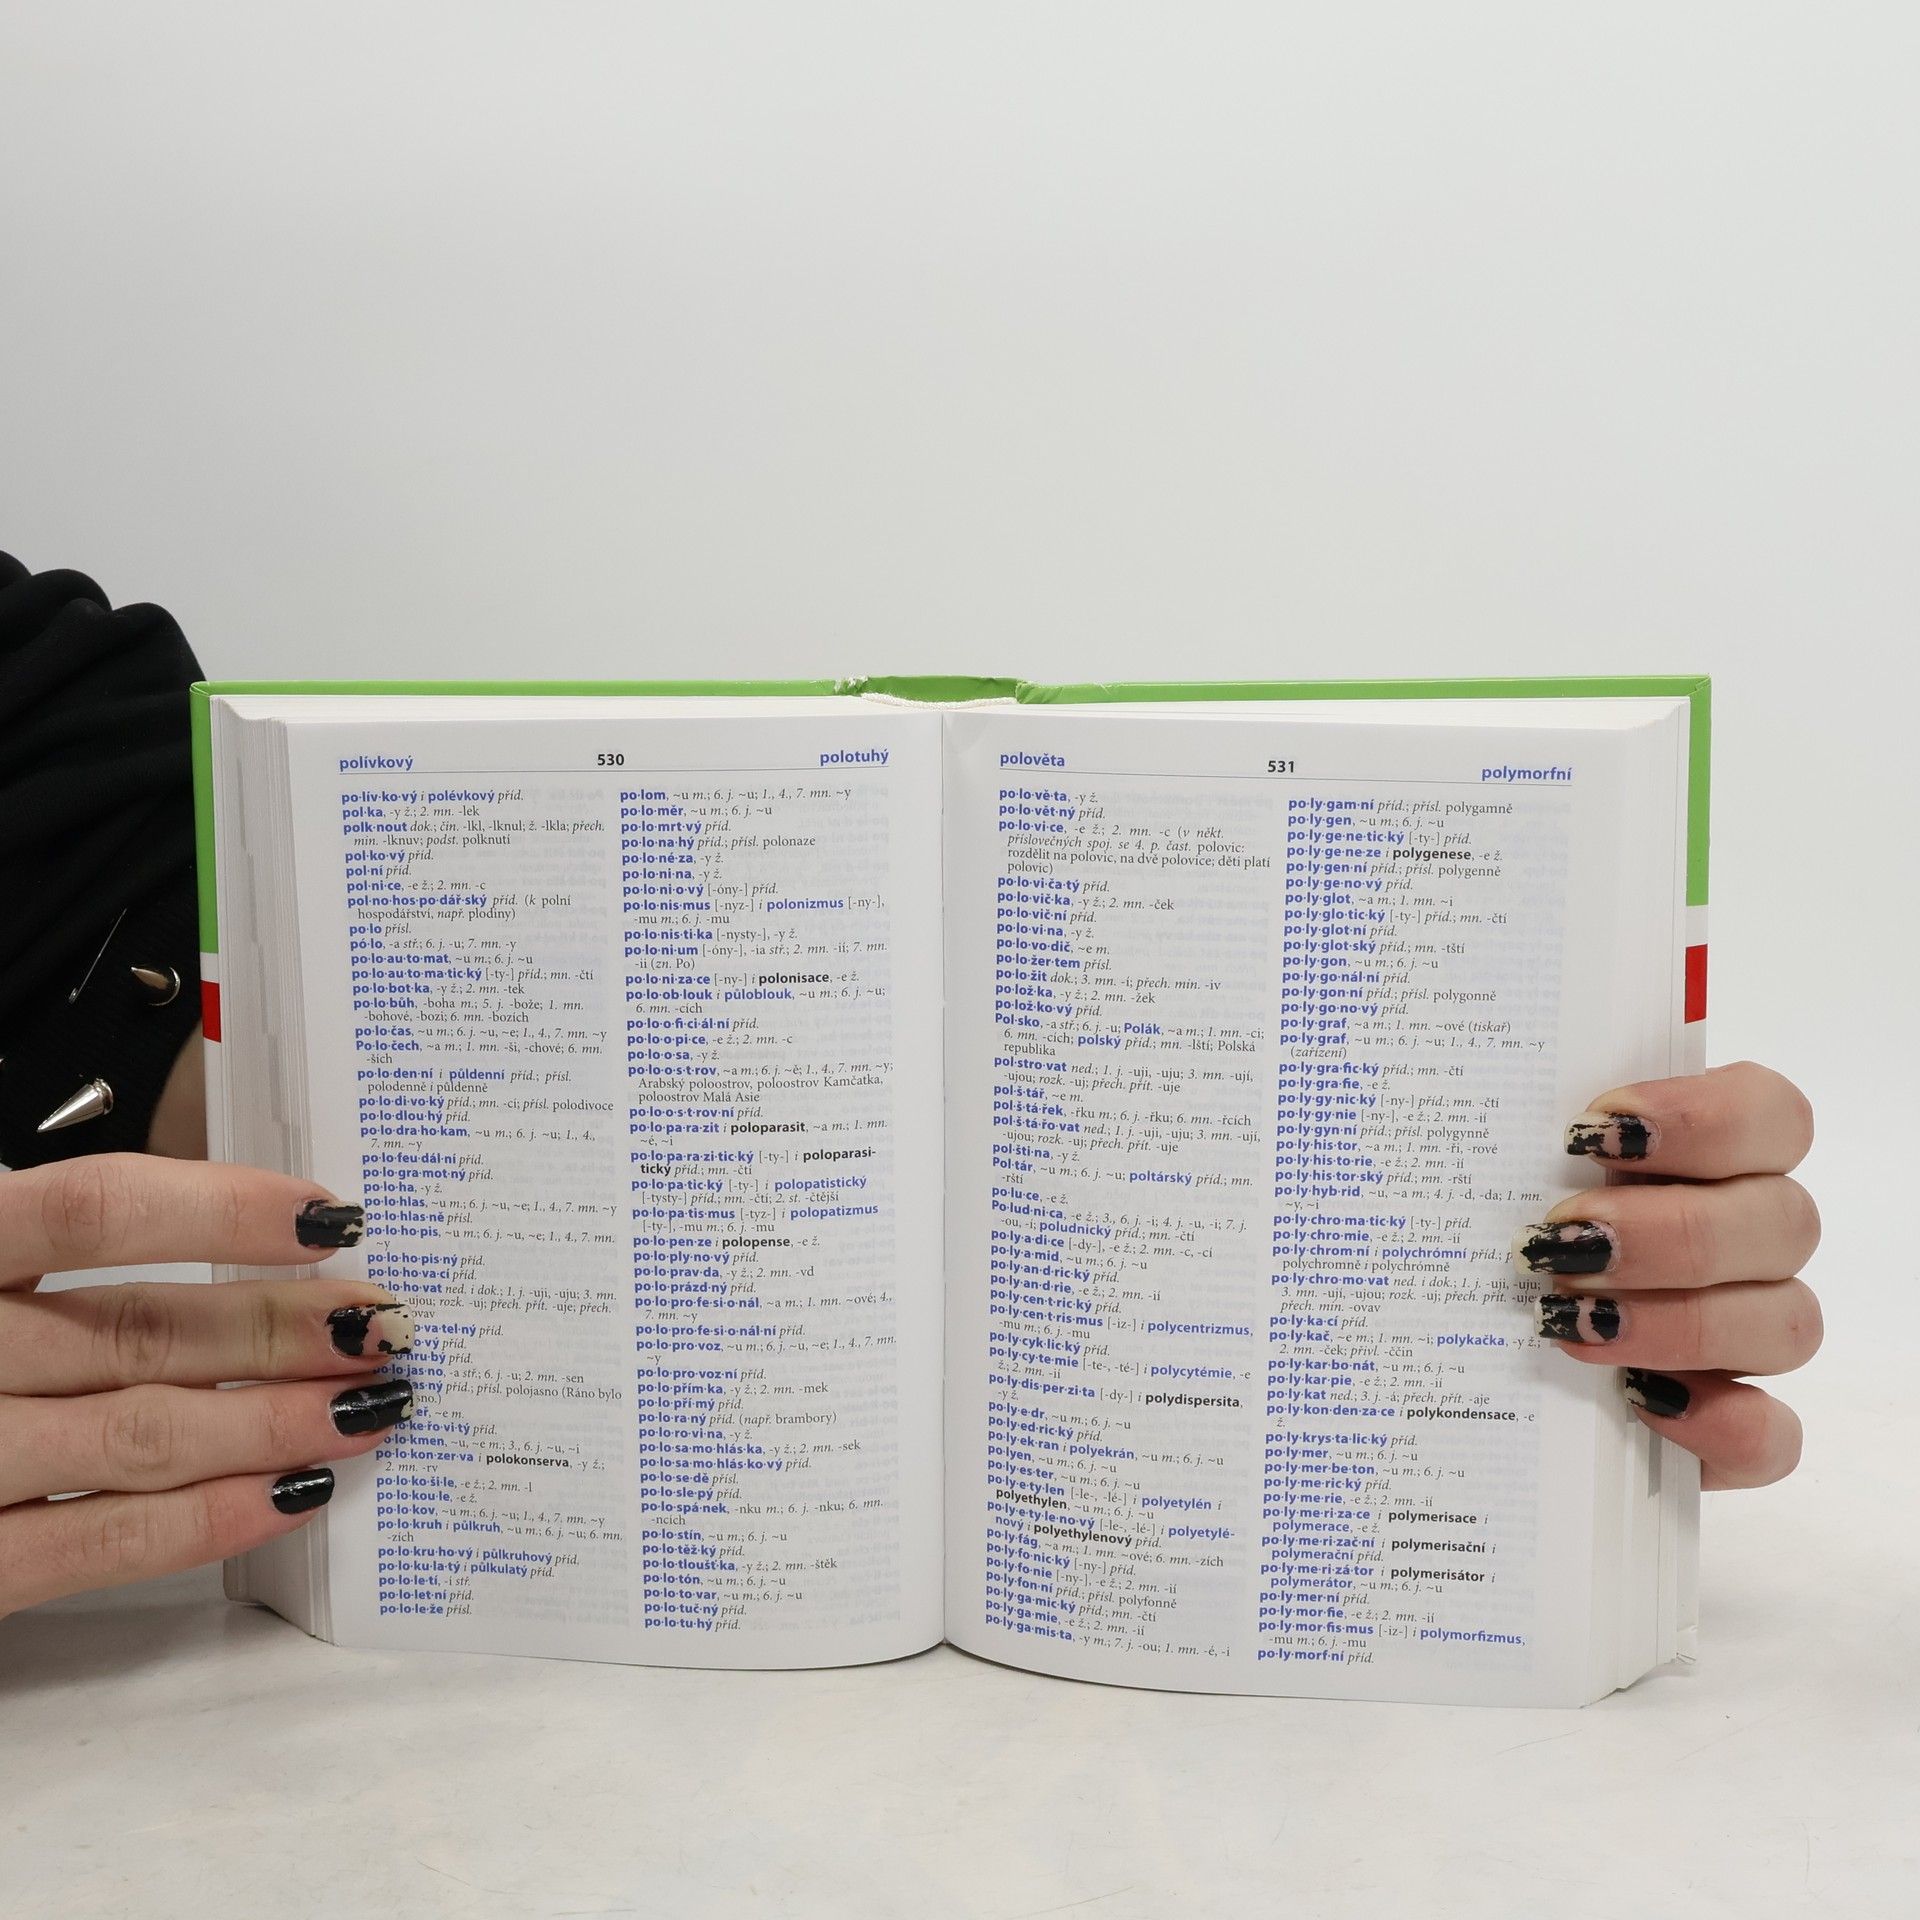 polívkový 530 polotuhý
po·lív·ko·vý i polévkový příd.
pol·ka, -y ž.; 2. mn. -lek
polk·nout dok.; čin. -lkl, -lknul; ž. -lkla; přech.
min. -lknuv; podst. polknutí
pol·ko·vý příd.
pol·ní příd.
pol·ni·ce, -e ž.; 2. mn. -c
pol·no·hos·po·dář·ský příd. (k polní
hospodářství, např. plodiny)
po·lo přísl.
pó·lo, -a stř.; 6. j. -u; 7. mn. -y
po·lo·au·to·mat, ~u m.; 6. j. ~u
po·lo·au·to·ma·tic·ký [-ty-] příd.; mn. -čtí
po·lo·bot·ka, -y ž.; 2. mn. -tek
po·lo·bůh, -boha m.; 5. j. -bože; 1. mn.
-bohové, -bozi; 6. mn. -bozích
po·lo·čas, ~u m.; 6. j. ~u, ~e; 1., 4., 7. mn. ~y
Po·lo·čech, ~a m.; 1. mn. -ši, -chové; 6. mn.
-ších
po·lo·den·ní i půldenní příd.; přísl.
polodenně i půldenně
po·lo·di·vo·ký příd.; mn. -cí; přísl. polodivoce
po·lo·dlou·hý příd.
po·lo·dra·ho·kam, ~u m.; 6. j. ~u; 1., 4.,
7. mn. ~y
po·lo·feu·dál·ní příd.
po·lo·gra·mot·ný příd.
po·lo·ha, -y ž.
po·lo·hlas, ~u m.; 6. j. ~u, ~e; 1., 4., 7. mn. ~y
po·lo·hlas·ně přísl.
po·lo·ho·pis, ~u m.; 6. j. ~u, ~e; 1., 4., 7. mn.
~y
po·lo·ho·pis·ný příd.
po·lo·ho·va·cí příd.
po·lo·ho·vat ned. i dok.; 1. j. -uji, -uju; 3. mn.
-ujou; rozk. -uj; přech. přít. -uje; přech.
ovav
o·va·tel·ný příd.
o·vý příd.
hru·bý příd.
lo·jas·no, -a stř.; 6. j. -u; 2. mn. -sen
jas·ný příd.; přísl. polojasno (Ráno bylo
sno.)
eř, ~e m.
ke·řo·vi·tý příd.
lo·kmen, ~u, ~e m.; 3., 6. j. ~u, ~i
po·lo·kon·zer·va i polokonserva, -y ž.;
2. mn. -rv
po·lo·ko·ši·le, -e ž.; 2. mn. -l
po·lo·kou·le, -e ž.
po·lo·kov, ~u m.; 6. j. ~u; 1., 4., 7. mn. ~y
po·lo·kruh i půlkruh, ~u m.; 6. j. ~u; 6. mn.
-zích
po·lo·kru·ho·vý i půlkruhový příd.
po·lo·ku·la·tý i půlkulatý příd.
po·lo·le·tí, -í stř.
po·lo·let·ní příd.
po·lo·le·že přísl.
po·lom, ~u m.; 6. j. ~u; 1., 4., 7. mn. ~y
po·lo·měr, ~u m.; 6. j. ~u
po·lo·mrt·vý příd.
po·lo·na·hý příd.; přísl. polonaze
po·lo·né·za, -y ž.
po·lo·ni·na, -y ž.
po·lo·ni·o·vý [-óny-] příd.
po·lo·nis·mus [-nyz-] i polonizmus [-ny-],
-mu m.; 6. j. -mu
po·lo·nis·ti·ka [-nysty-], -y ž.
po·lo·ni·um [-óny-], -ia stř.; 2. mn. -ií; 7. mn.
-ii (zn. Po)
po·lo·ni·za·ce [-ny-] i polonisace, -e ž.
po·lo·ob·louk i půloblouk, ~u m.; 6. j. ~u;
6. mn. -cích
po·lo·o·fi·ci·ál·ní příd.
po·lo·o·pi·ce, -e ž.; 2. mn. -c
po·lo·o·sa, -y ž.
po·lo·o·s·t·rov, ~a m.; 6. j. ~ě; 1., 4., 7. mn. ~y;
Arabský poloostrov, poloostrov Kamčatka,
poloostrov Malá Asie
po·lo·o·s·t·rov·ní příd.
po·lo·pa·ra·zit i poloparasit, ~a m.; 1. mn.
~é, ~i
po·lo·pa·ra·zi·tic·ký [-ty-] i poloparasi-
tický příd.; mn. -čtí
po·lo·pa·tic·ký [-ty-] i polopatistický
[-tysty-] příd.; mn. -čtí; 2. st. -čtější
po·lo·pa·tis·mus [-tyz-] i polopatizmus
[-ty-], -mu m.; 6. j. -mu
po·lo·pen·ze i polopense, -e ž.
po·lo·ply·no·vý příd.
po·lo·prav·da, -y ž.; 2. mn. -vd
po·lo·prázd·ný příd.
po·lo·pro·fe·si·o·nál, ~a m.; 1. mn. ~ové; 4.,
7. mn. ~y
po·lo·pro·fe·si·o·nál·ní příd.
po·lo·pro·voz, ~u m.; 6. j. ~u, ~e; 1., 4., 7. mn.
~y
po·lo·pro·voz·ní příd.
po·lo·přím·ka, -y ž.; 2. mn. -mek
po·lo·pří·mý příd.
po·lo·ra·ný příd. (např. brambory)
po·lo·ro·vi·na, -y ž.
po·lo·sa·mo·hlás·ka, -y ž.; 2. mn. -sek
po·lo·sa·mo·hlás·ko·vý příd.
po·lo·se·dě přísl.
po·lo·sle·pý příd.
po·lo·spá·nek, -nku m.; 6. j. -nku; 6. mn.
-ncích
po·lo·stín, ~u m.; 6. j. ~u
po·lo·těž·ký příd.
po·lo·tloušť·ka, -y ž.; 2. mn. -štěk
po·lo·tón, ~u m.; 6. j. ~u
po·lo·to·var, ~u m.; 6. j. ~u
po·lo·tuč·ný příd.
po·lo·tu·hý příd.
polověta 531 polymorfní
po·lo·vě·ta, -y ž.
po·lo·vět·ný příd.
po·lo·vi·ce, -e ž.; 2. mn. -c (v někt.
příslovečných spoj. se 4. p. část. polovic:
rozdělit na polovic, na dvě polovice; děti platí
polovic)
po·lo·vi·ča·tý příd.
po·lo·vič·ka, -y ž.; 2. mn. -ček
po·lo·vič·ní příd.
po·lo·vi·na, -y ž.
po·lo·vo·dič, ~e m.
po·lo·žer·tem přísl.
po·lo·žit dok.; 3. mn. -í; přech. min. -iv
po·lož·ka, -y ž.; 2. mn. -žek
po·lož·ko·vý příd.
Pol·sko, -a stř.; 6. j. -u; Polák, ~a m.; 1. mn. -ci;
6. mn. -cích; polský příd.; mn. -lští; Polská
republika
pol·stro·vat ned.; 1. j. -uji, -uju; 3. mn. -ují,
-ujou; rozk. -uj; přech. přít. -uje
pol·š·tář, ~e m.
pol·š·tá·řek, -řku m.; 6. j. -řku; 6. mn. -řcích
pol·š·tá·řo·vat ned.; 1. j. -uji, -uju; 3. mn. -ují,
-ujou; rozk. -uj; přech. přít. -uje
pol·šti·na, -y ž.
Pol·tár, ~u m.; 6. j. ~u; poltárský příd.; mn.
-rští
po·lu·ce, -e ž.
Po·lud·ni·ca, -e ž.; 3., 6. j. -i; 4. j. -u, -i; 7. j.
-ou, -í; poludnický příd.; mn. -čtí
po·ly·a·di·ce [-dy-], -e ž.; 2. mn. -c, -cí
po·ly·a·mid, ~u m.; 6. j. ~u
po·ly·an·d·ric·ký příd.
po·ly·an·d·rie, -e ž.; 2. mn. -ií
po·ly·cen·t·ric·ký příd.
po·ly·cen·t·ris·mus [-iz-] i polycentrizmus,
-mu m.; 6. j. -mu
po·ly·cyk·lic·ký příd.
po·ly·cy·te·mie [-te-, -té-] i polycytémie, -e
ž.; 2. mn. -ií
po·ly·dis·per·zi·ta [-dy-] i polydispersita,
-y ž.
po·ly·e·dr, ~u m.; 6. j. ~u
po·ly·ed·ric·ký příd.
po·ly·ek·ran i polyekrán, ~u m.; 6. j. ~u
po·lyen, ~u m.; 6. j. ~u
po·ly·es·ter, ~u m.; 6. j. ~u
po·ly·e·ty·len [-le-, -lé-] i polyetylén i
polyethylen, ~u m.; 6. j. ~u
po·ly·e·ty·le·no·vý [-le-, -lé-] i polyetylé-
nový i polyethylenový příd.
po·ly·fág, ~a m.; 1. mn. ~ové; 6. mn. -zích
po·ly·fo·nic·ký [-ny-] příd.
po·ly·fo·nie [-ny-], -e ž.; 2. mn. -ií
po·ly·fon·ní příd.; přísl. polyfonně
po·ly·ga·mic·ký příd.; mn. -čtí
po·ly·ga·mie, -e ž.; 2. mn. -ií
po·ly·ga·mis·ta, -y m.; 7. j. -ou; 1. mn. -é, -i
po·ly·gam·ní příd.; přísl. polygamně
po·ly·gen, ~u m.; 6. j. ~u
po·ly·ge·ne·tic·ký [-ty-] příd.
po·ly·ge·ne·ze i polygenese, -e ž.
po·ly·gen·ní příd.; přísl. polygenně
po·ly·ge·no·vý příd.
po·ly·glot, ~a m.; 1. mn. ~i
po·ly·glo·tic·ký [-ty-] příd.; mn. -čtí
po·ly·glot·ní příd.
po·ly·glot·ský příd.; mn. -tští
po·ly·gon, ~u m.; 6. j. ~u
po·ly·go·nál·ní příd.
po·ly·gon·ní příd.; přísl. polygonně
po·ly·go·no·vý příd.
po·ly·graf, ~a m.; 1. mn. ~ové (tiskař)
po·ly·graf, ~u m.; 6. j. ~u; 1., 4., 7. mn. ~y
(zařízení)
po·ly·gra·fic·ký příd.; mn. -čtí
po·ly·gra·fie, -e ž.
po·ly·gy·nic·ký [-ny-] příd.; mn. -čtí
po·ly·gy·nie [-ny-], -e ž.; 2. mn. -ií
po·ly·gyn·ní příd.; přísl. polygynně
po·ly·his·tor, ~a m.; 1. mn. -ři, -rové
po·ly·his·to·rie, -e ž.; 2. mn. -ií
po·ly·his·tor·ský příd.; mn. -rští
po·ly·hyb·rid, ~u, ~a m.; 4. j. -d, -da; 1. mn.
~y, ~i
po·ly·chro·ma·tic·ký [-ty-] příd.
po·ly·chro·mie, -e ž.; 2. mn. -ií
po·ly·chrom·ní i polychrómní příd.; p
polychromně i polychrómně
po·ly·chro·mo·vat ned. i dok.; 1. j. -uji, -uju;
3. mn. -ují, -ujou; rozk. -uj; přech. přít. -uje;
přech. min. -ovav
po·ly·ka·cí příd.
po·ly·kač, ~e m.; 1. mn. ~i; polykačka, -y ž.;
2. mn. -ček; přivl. -ččin
po·ly·kar·bo·nát, ~u m.; 6. j. ~u
po·ly·kar·pie, -e ž.; 2. mn. -ií
po·ly·kat ned.; 3. j. -á; přech. přít. -aje
po·ly·kon·den·za·ce i polykondensace, -e
ž.
po·ly·krys·ta·lic·ký příd.
po·ly·mer, ~u m.; 6. j. ~u
po·ly·mer·be·ton, ~u m.; 6. j. ~u
po·ly·me·ric·ký příd.
po·ly·me·rie, -e ž.; 2. mn. -ií
po·ly·me·ri·za·ce i polymerisace i
polymerace, -e ž.
po·ly·me·ri·zač·ní i polymerisační i
polymerační příd.
po·ly·me·ri·zá·tor i polymerisátor i
polymerátor, ~u m.; 6. j. ~u
po·ly·mer·ní příd.
po·ly·mor·fie, -e ž.; 2. mn. -ií
po·ly·mor·fis·mus [-iz-] i polymorfizmus,
-mu m.; 6. j. -mu
po·ly·morf·ní příd.